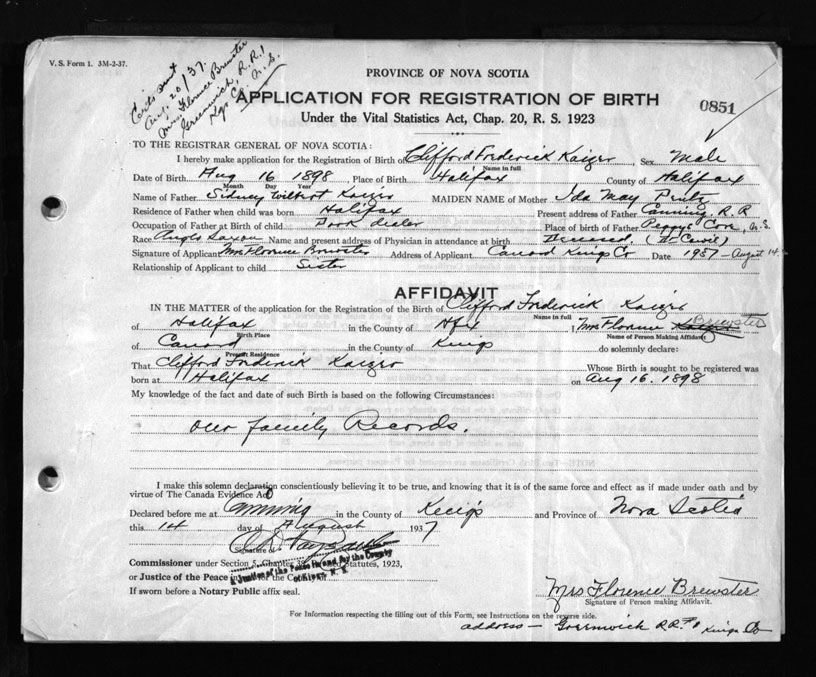 V. S. Form 1. 3M-2-37.
Certs sent
Aug. 20/37.
Mrs Florence Brewster
Greenwich, R.R.1
Kgs Co. N. S.
PROVINCE OF NOVA SCOTIA
APPLICATION FOR REGISTRATION OF BIRTH
0851
Under the Vital Statistics Act, Chap. 20, R. S. 1923
TO THE REGISTRAR GENERAL OF NOVA SCOTIA:
I hereby make application for the Registration of Birth of Clifford Frederick Kaizer, Sex Male
Name in full
Date of Birth Aug 16 1898, Place of Birth Halifax County of Halifax
Month Day Year
Name of Father Sidney Wilbert Kaizer MAIDEN NAME of Mother Ida May
Residence of Father when child was born Halifax Present address of Father Canning R. R
Occupation of Father at Birth of Child dealer Place of birth of Father Peggys Cove, N. S.
Race Anglo Saxon Name and present address of Physician in attendance at birth Deceased.
Signature of Applicant Mrs Florence Brewster Address of Applicant Canard Kings Co Date 1937 - August 14.
Relationship of Applicant to child Sister
AFFIDAVIT
IN THE MATTER of the application for the Registration of the Birth of Clifford Frederick Kaizer
Name in full
of Halifax in the County of Hfx I Mrs Florence Kaizer Brewster
Birth Place Name of Person Making Affidavit
of Canard in the County of Kings do solemnly declare:
Present Residence
That Clifford Frederick Kaizer Whose Birth is sought to be registered was
born at Halifax on Aug 16. 1898
My knowledge of the fact and date of such Birth is based on the following Circumstances:
our family Records.
I make this solemn declaration conscientiously believing it to be true, and knowing that it is of the same force and effect as if made under oath and by
virtue of The Canada Evidence Act
Declared before me at Canning in the County of Kings and Province of Nova Scotia
this 14 day of August 1937
Signature of
Commissioner under Section 5, Chapter Statutes, 1923,
A Justice of the Peace in and for the County
of Kings N. S.
or Justice of the Peace in for the
If sworn before a Notary Public affix seal.
Mrs Florence Brewster
Signature of Person making Affidavit.
For Information respecting the filling out of this Form, see Instructions on the reverse side.
address - Greenwich R.R.#1 Kings Co